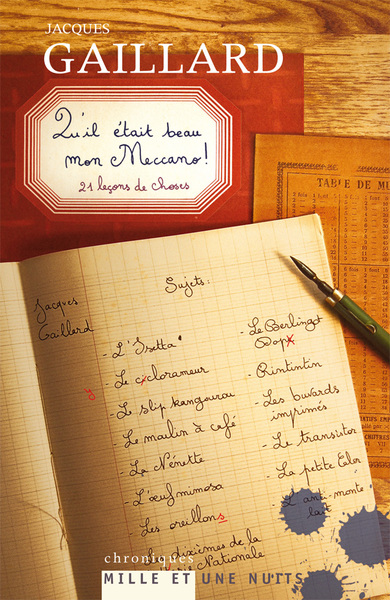 JACQUES
GAILLARD
Qu'il était beau
mon Meccano!
21 leçons de choses
TABLE DE MU
Jacques
Gaillard
Sujets:
- L'Isetta
- Le ciclorameur
y
- Le slip kangourou
Le moulin à café
- La Nénette
L'œuf mimosa
- Les oreillons
dixièmes de la
Nationale
- Le Berlingot
Dopx
- Rintintin
- Les buvards
imprimés
- Le transistor
- La petite Eiler
- L'anti-monte
lait
chroniques
MILLE ET UNE NUITS